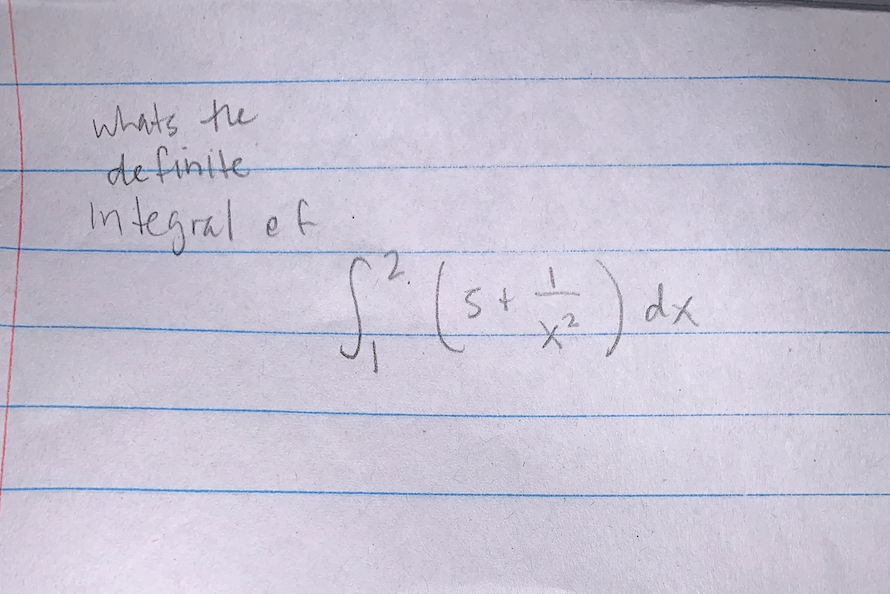 whats the
definite
integral of
∫₁² (5 + 1/x²) dx